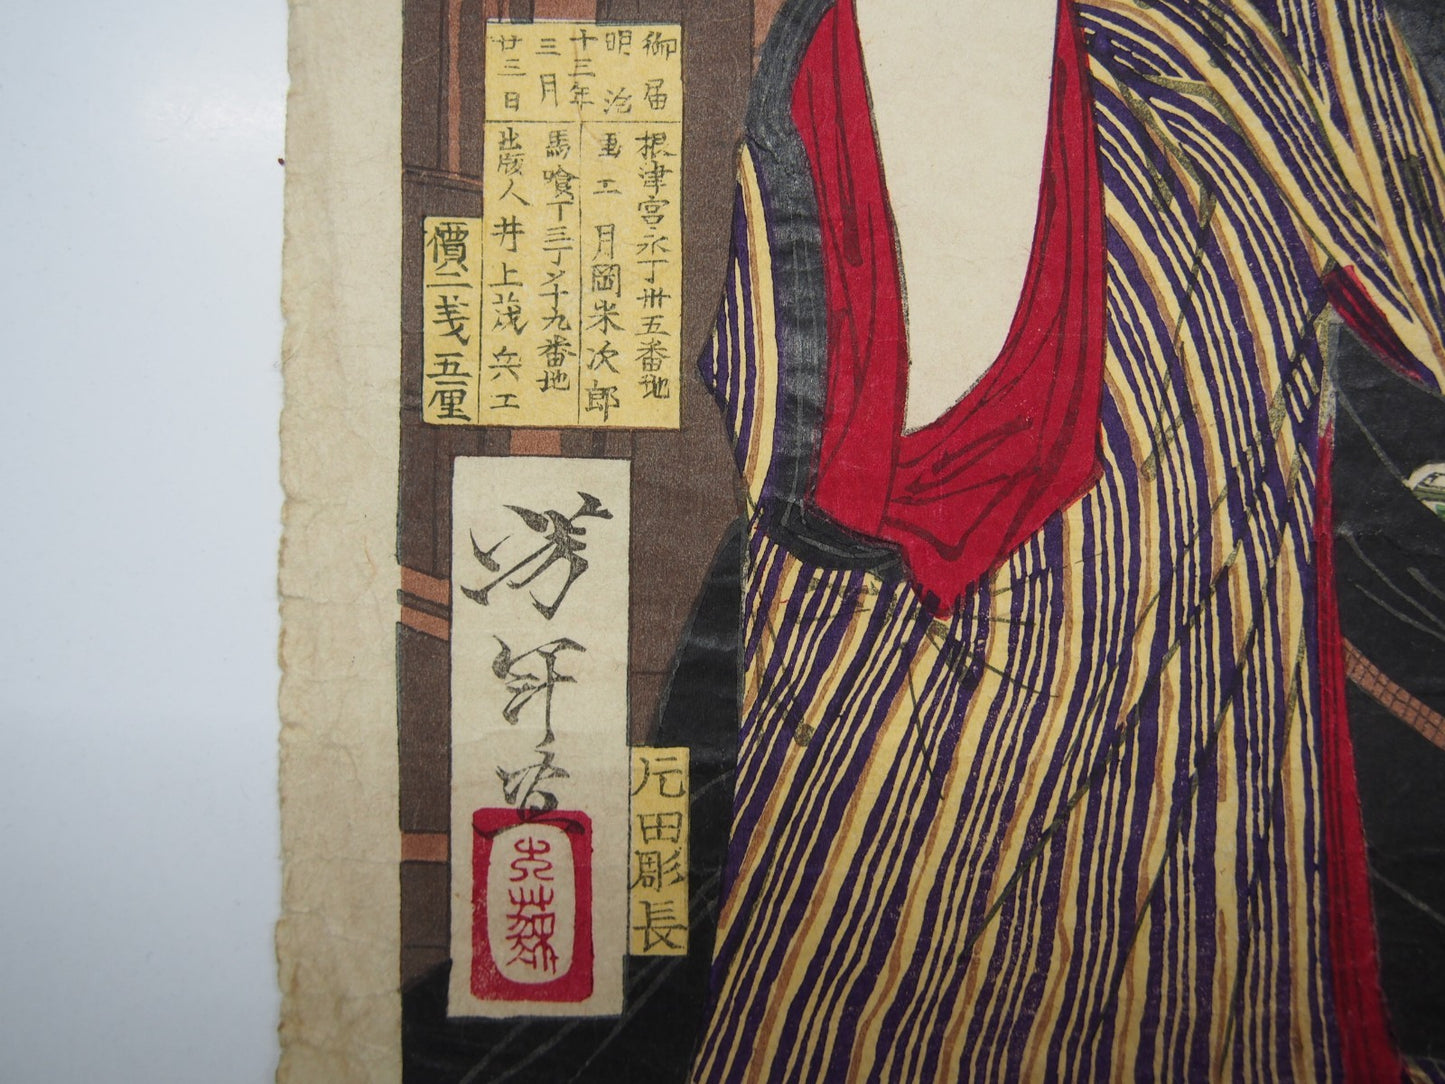 御届
明治
十三年
三月
廿三日
根津宮永丁卅五番地
画工月岡米次郎
馬喰丁三丁メ十九番地
出版人井上茂兵エ
價二戋五厘
芳年画
元田彫長
大蘇